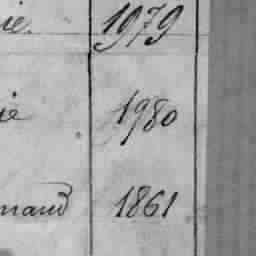 ie. 1979
ie 1980
naud 1861